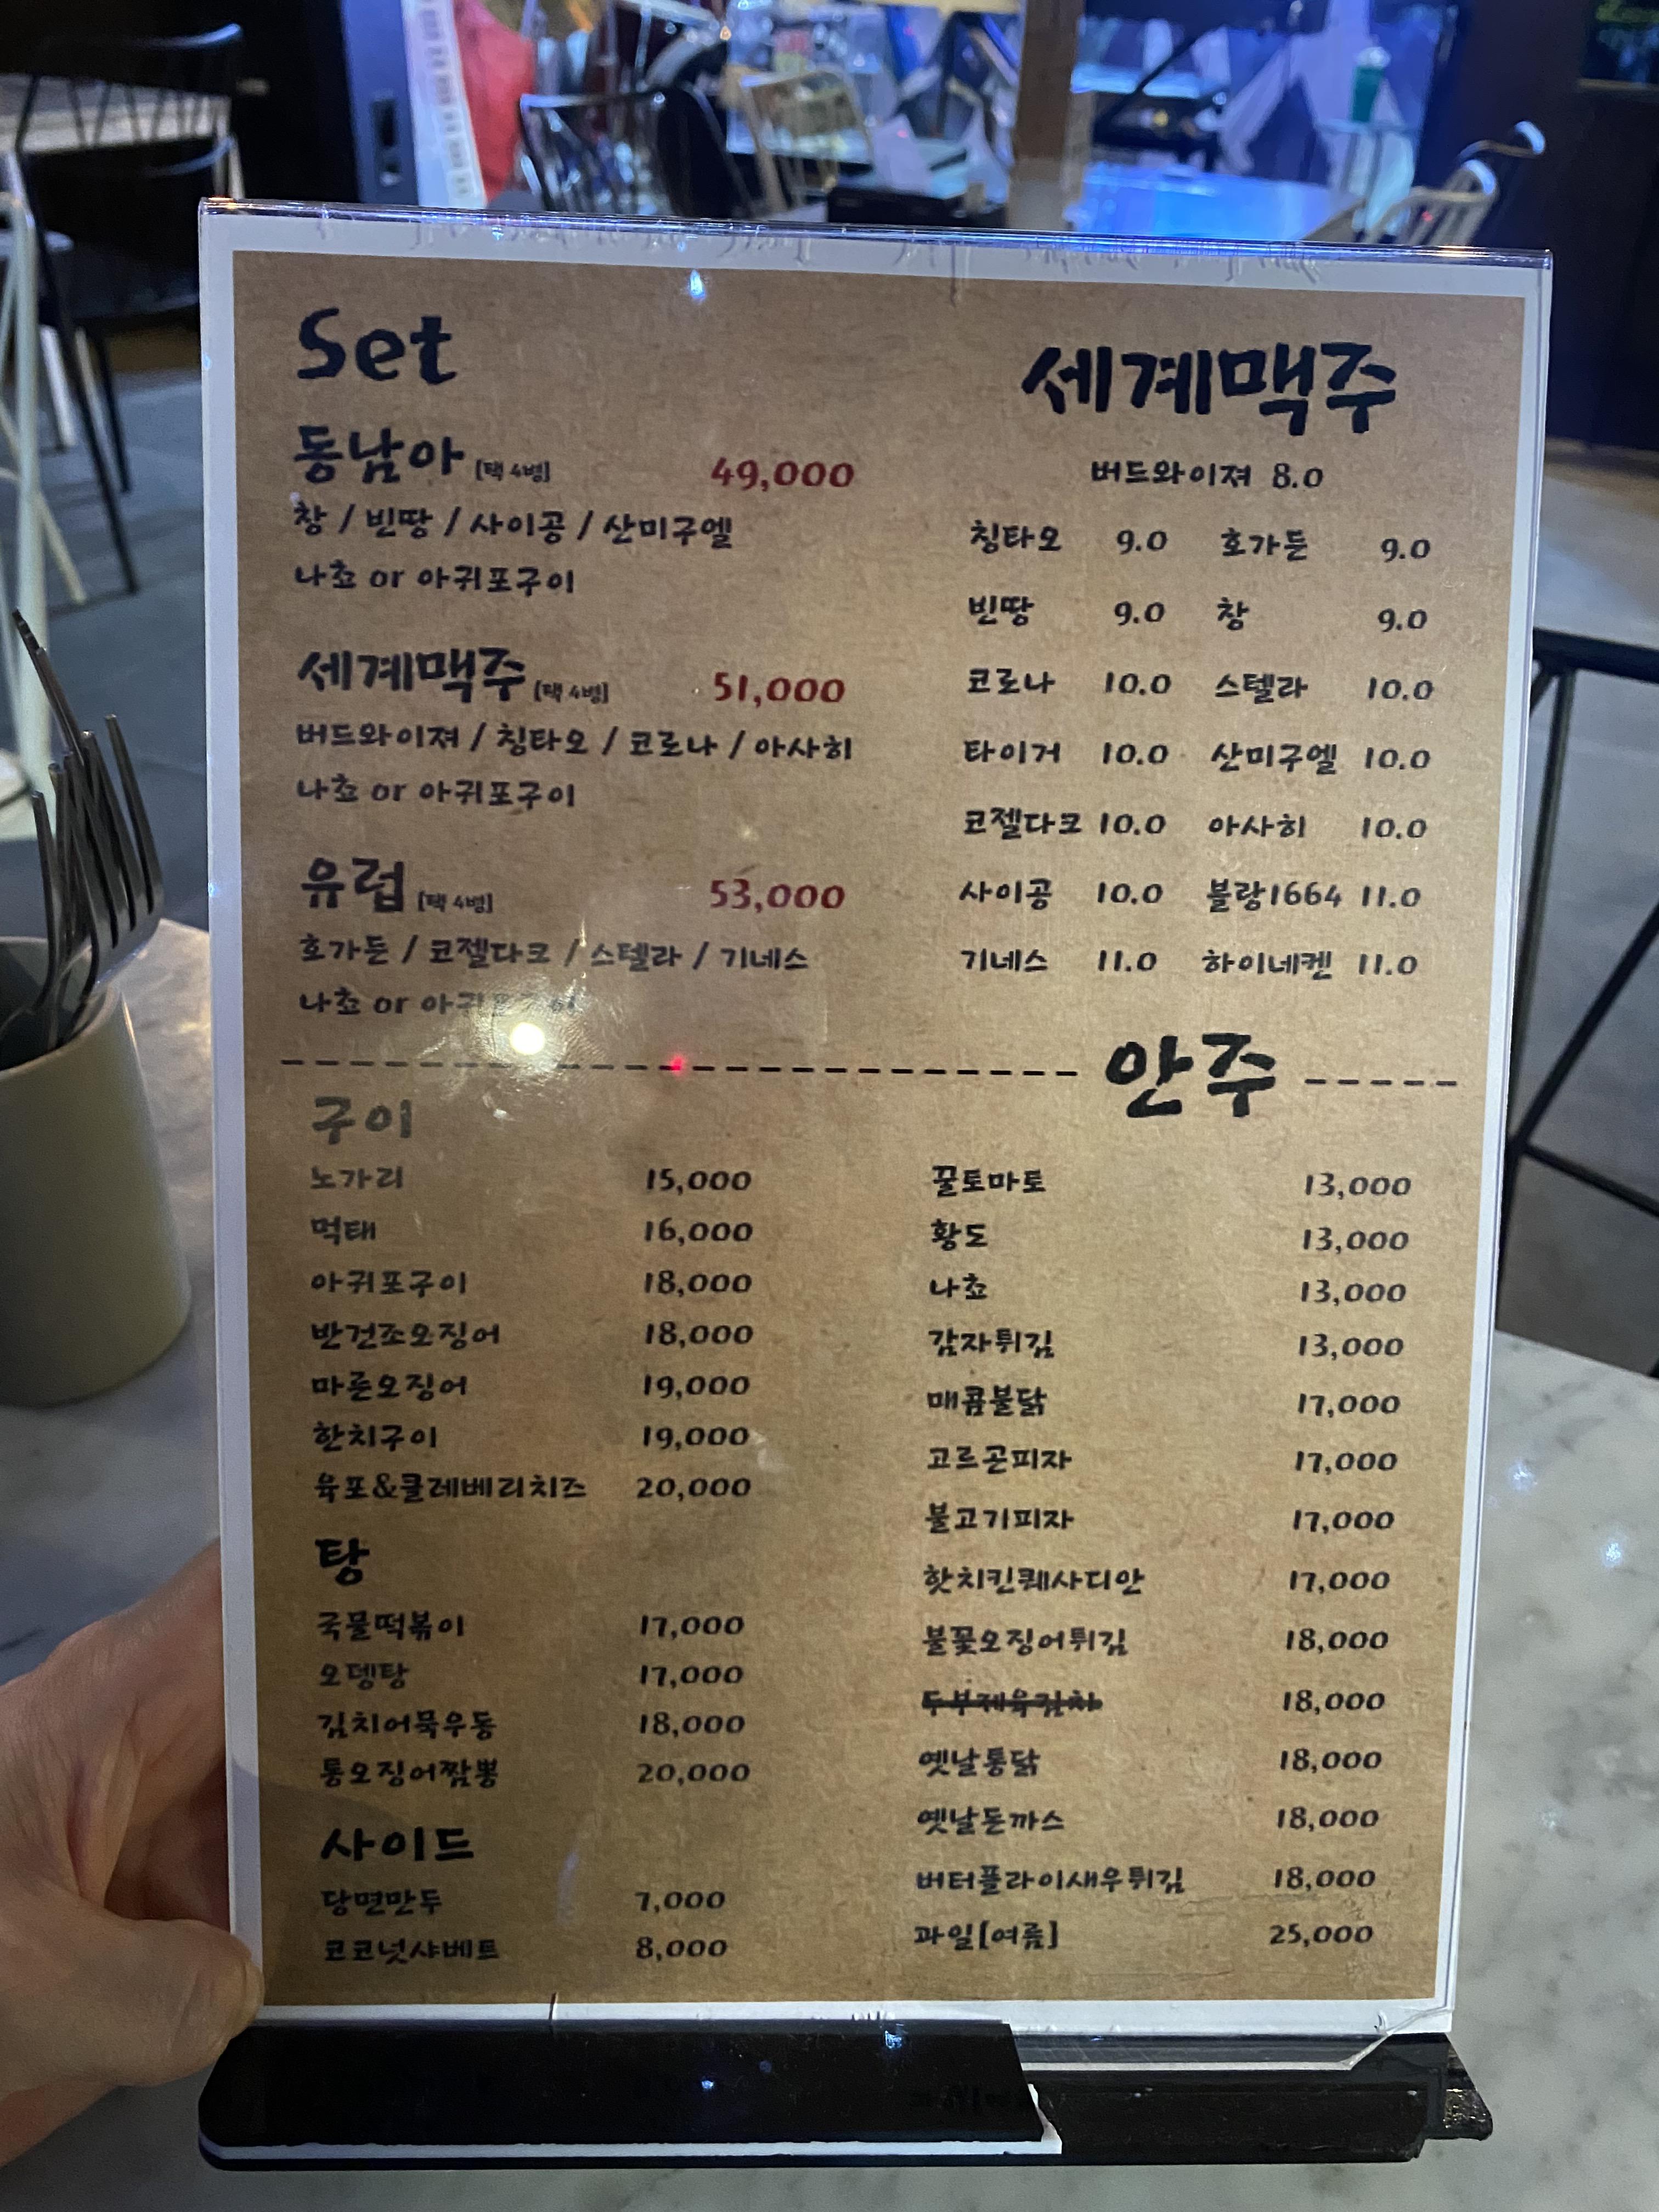 Set
동남아 [택 4병] 49,000
창 / 빈땅 / 사이공 / 산미구엘
나쵸 or 아귀포구이
세계맥주 [택 4병] 51,000
버드와이져 / 칭타오 / 코로나 / 아사히
나쵸 or 아귀포구이
유럽 [택 4병] 53,000
호가든 / 코젤다크 / 스텔라 / 기네스
나쵸 or 아귀포구이
세계맥주
버드와이져 8.0
칭타오 9.0 호가든 9.0
빈땅 9.0 창 9.0
코로나 10.0 스텔라 10.0
타이거 10.0 산미구엘 10.0
코젤다크 10.0 아사히 10.0
사이공 10.0 블랑1664 11.0
기네스 11.0 하이네켄 11.0
안주
구이
노가리 15,000
먹태 16,000
아귀포구이 18,000
반건조오징어 18,000
마른오징어 19,000
한치구이 19,000
육포&클레베리치즈 20,000
탕
국물떡볶이 17,000
오뎅탕 17,000
김치어묵우동 18,000
통오징어짬뽕 20,000
사이드
당면만두 7,000
코코넛샤베트 8,000
꿀토마토 13,000
황도 13,000
나쵸 13,000
감자튀김 13,000
매콤불닭 17,000
고르곤피자 17,000
불고기피자 17,000
핫치킨퀘사디안 17,000
불꽃오징어튀김 18,000
두부제육김치 18,000
옛날통닭 18,000
옛날돈까스 18,000
버터플라이새우튀김 18,000
과일[여름] 25,000